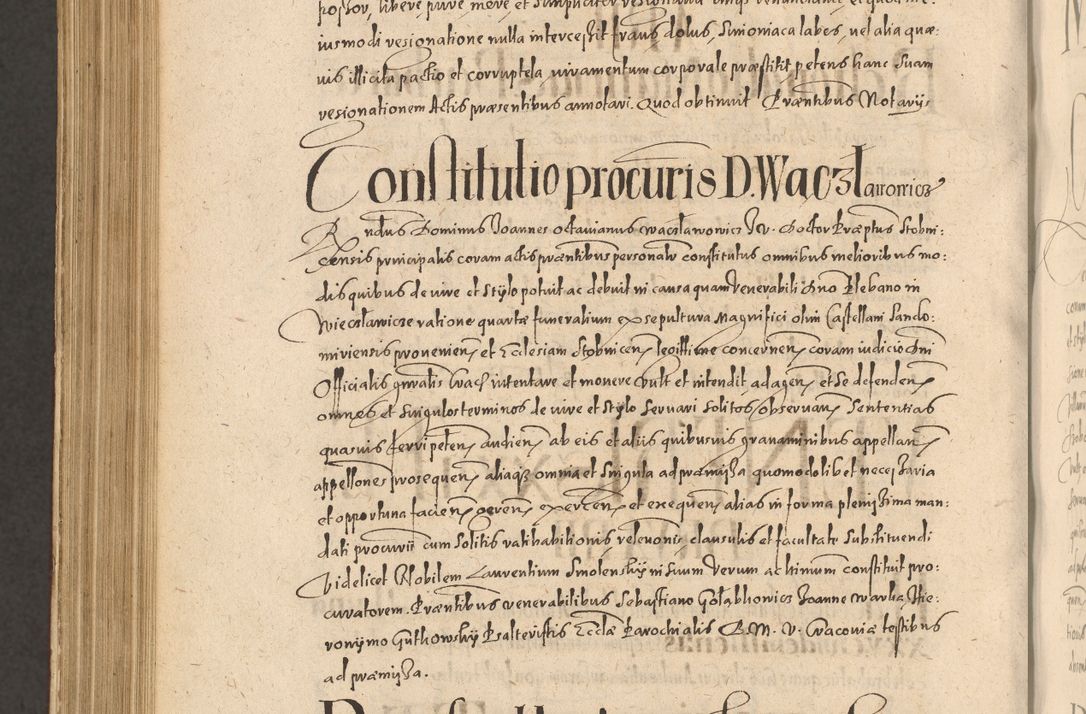 postor, libere pure mere et simpliciter resignavit
iusmodi resignatione nulla intercessit fraus dolus, Simoniaca labes, vel alia quæ:
vis illicita pactio et corruptela, iuramentum corporale præstitit petens hanc suam
resignationem Actis præsentibus annotari. Quod obtinuit Præntibus Notarijs
Constitutio procuris D. Waczlawowicz
Rndus Dominus Joannes Octavianus Wacsławowicz JV. Doctor Præptus Stobni:
censis principalis coram actis præntibus personalr constitutus omnibus melioribus mo:
dis quibus de iure et stylo potuit ac debuit in causa quam Venerabili Dno Plebano in
Wieczławicze ratione quartæ funeralium ex sepultura Magnifici olim Castellani Sando:
miriensis provenien et Ecclesiam Stobnicen legittime concernen coram iudicio Dni
Officialis gnralis Crac intentare et movere vult et intendit ad agen et se defenden
omnes et singulos terminos de iure et stylo servari solitos observan Sententias
quasvis ferri peten audien ab eis et aliis quibusvis gravaminibus appellan
appellones prosequen aliaqz omnia et singula ad præmissa quomodolibet necessaria
et opportuna facien geren exercen et exequen alias in forma plenissima man:
dati procurii cum solitis ratihabitionis relevonis, clausulis et facultate substituendi
videlicet Nobilem Laurentium Smolensky in suum verum ac ltimum constituit pro:
curatorem. Præntibus venerabilibus Sebastiano Gołąbkowicz Joanne Warka, Hie:
ronymo Guthowsky Psalteristis Ecclæ Parochialis B. M. V. Cracoviæ testibus
ad præmissa.